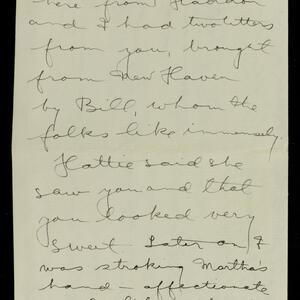 here from Haddon
and I had two letters
from you, brought
from New Haven
by Bill, whom the
folks like immensely.
Hattie said she
saw you and that
you looked very
sweet Later on I
was stroking Martha's
hand - affectionate